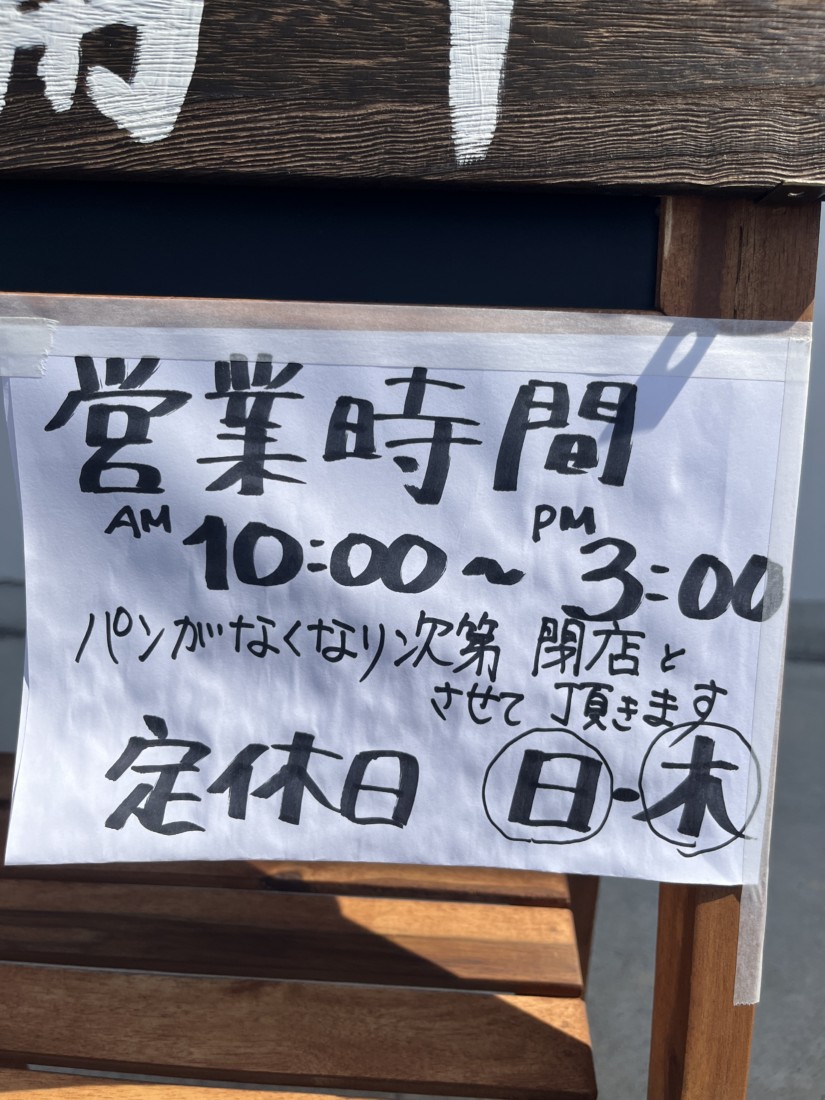 営業時間
AM 10:00～PM 3:00
パンがなくなり次第 閉店と
させて頂きます
定休日 日・木